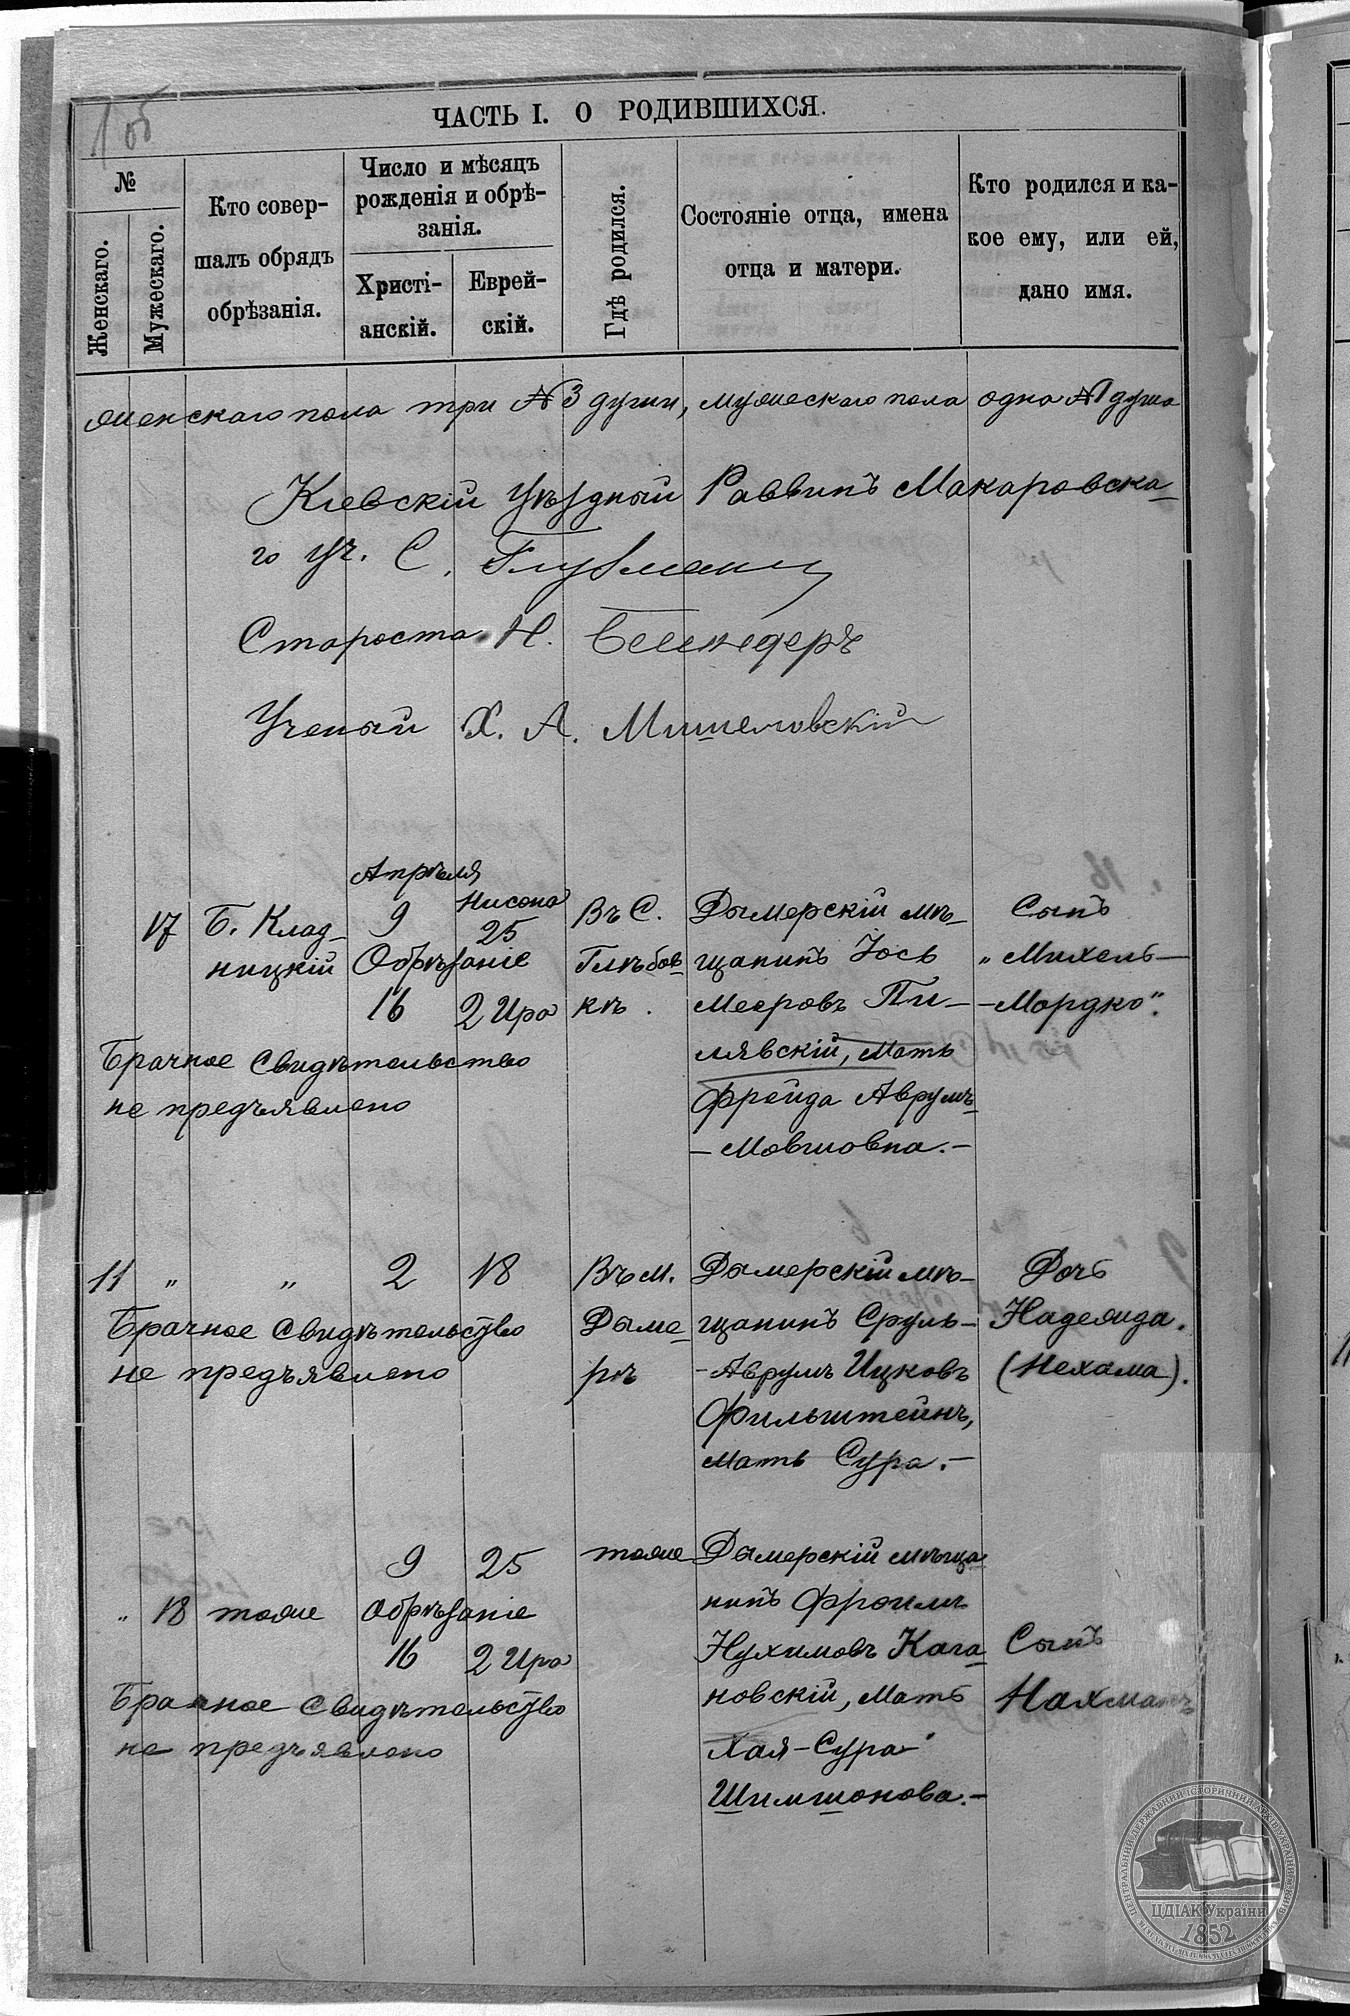 1 об
ЧАСТЬ I. О РОДИВШИХСЯ.
№
Женскаго.
Мужескаго.
Кто совер-
шалъ обрядъ
обрѣзанія.
Число и мѣсяцъ
рожденія и обрѣ-
занія.
Христі-
анскій.
Еврей-
скій.
Гдѣ родился.
Состояніе отца, имена
отца и матери.
Кто родился и ка-
кое ему, или ей,
дано имя.
женскаго пола три №3 души, мужескаго пола одна №1 душа
Кіевскій Уѣздный Раввинъ Макаровска-
го уч. С.
Староста Н.
Ученый Х. А.
17
Б. Клад-
ницкій
Апрѣля
9
Обрѣзаніе
16
Нисона
25
2 Ира
Въ С.
Глѣбов-
кѣ.
Дымерскій мѣ-
щанинъ Іось
Мееровъ Пи-
лявскій, Мать
Фрейда Аврумъ-
-Мовшовна.-
Сынъ
„Михель-
-Мордко".
Брачное Свидѣтельство
не предъявлено
11 " "
2
18
Въ м.
Дыме-
рѣ
Дымерскій мѣ-
щанинъ Сруль-
-Аврумъ Ицковъ
Фильштейнъ,
Мать Сура.-
Дочь
Надежда.
(Нехама).
Брачное Свидѣтельство
не предъявлено
" 18 тоже
9
Обрѣзаніе
16
25
2 Ира
тоже
Дымерскій мѣща-
нинъ Фроимъ
Нухимовъ Кага-
новскій, Мать
Хая-Сура
Шимшонова.-
Сынъ
Нахманъ
Брачное Свидѣтельство
не предъявлено
ЦДІАК України
1852